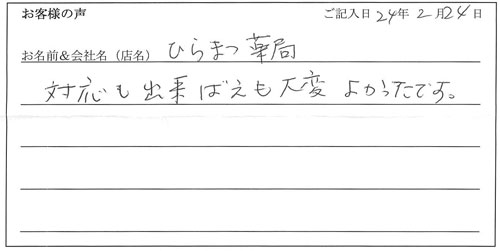 お客様の声 ご記入日 24年 2月24日
お名前&会社名（店名） ひらまつ薬局
対応も出来ばえも大変よかったです。